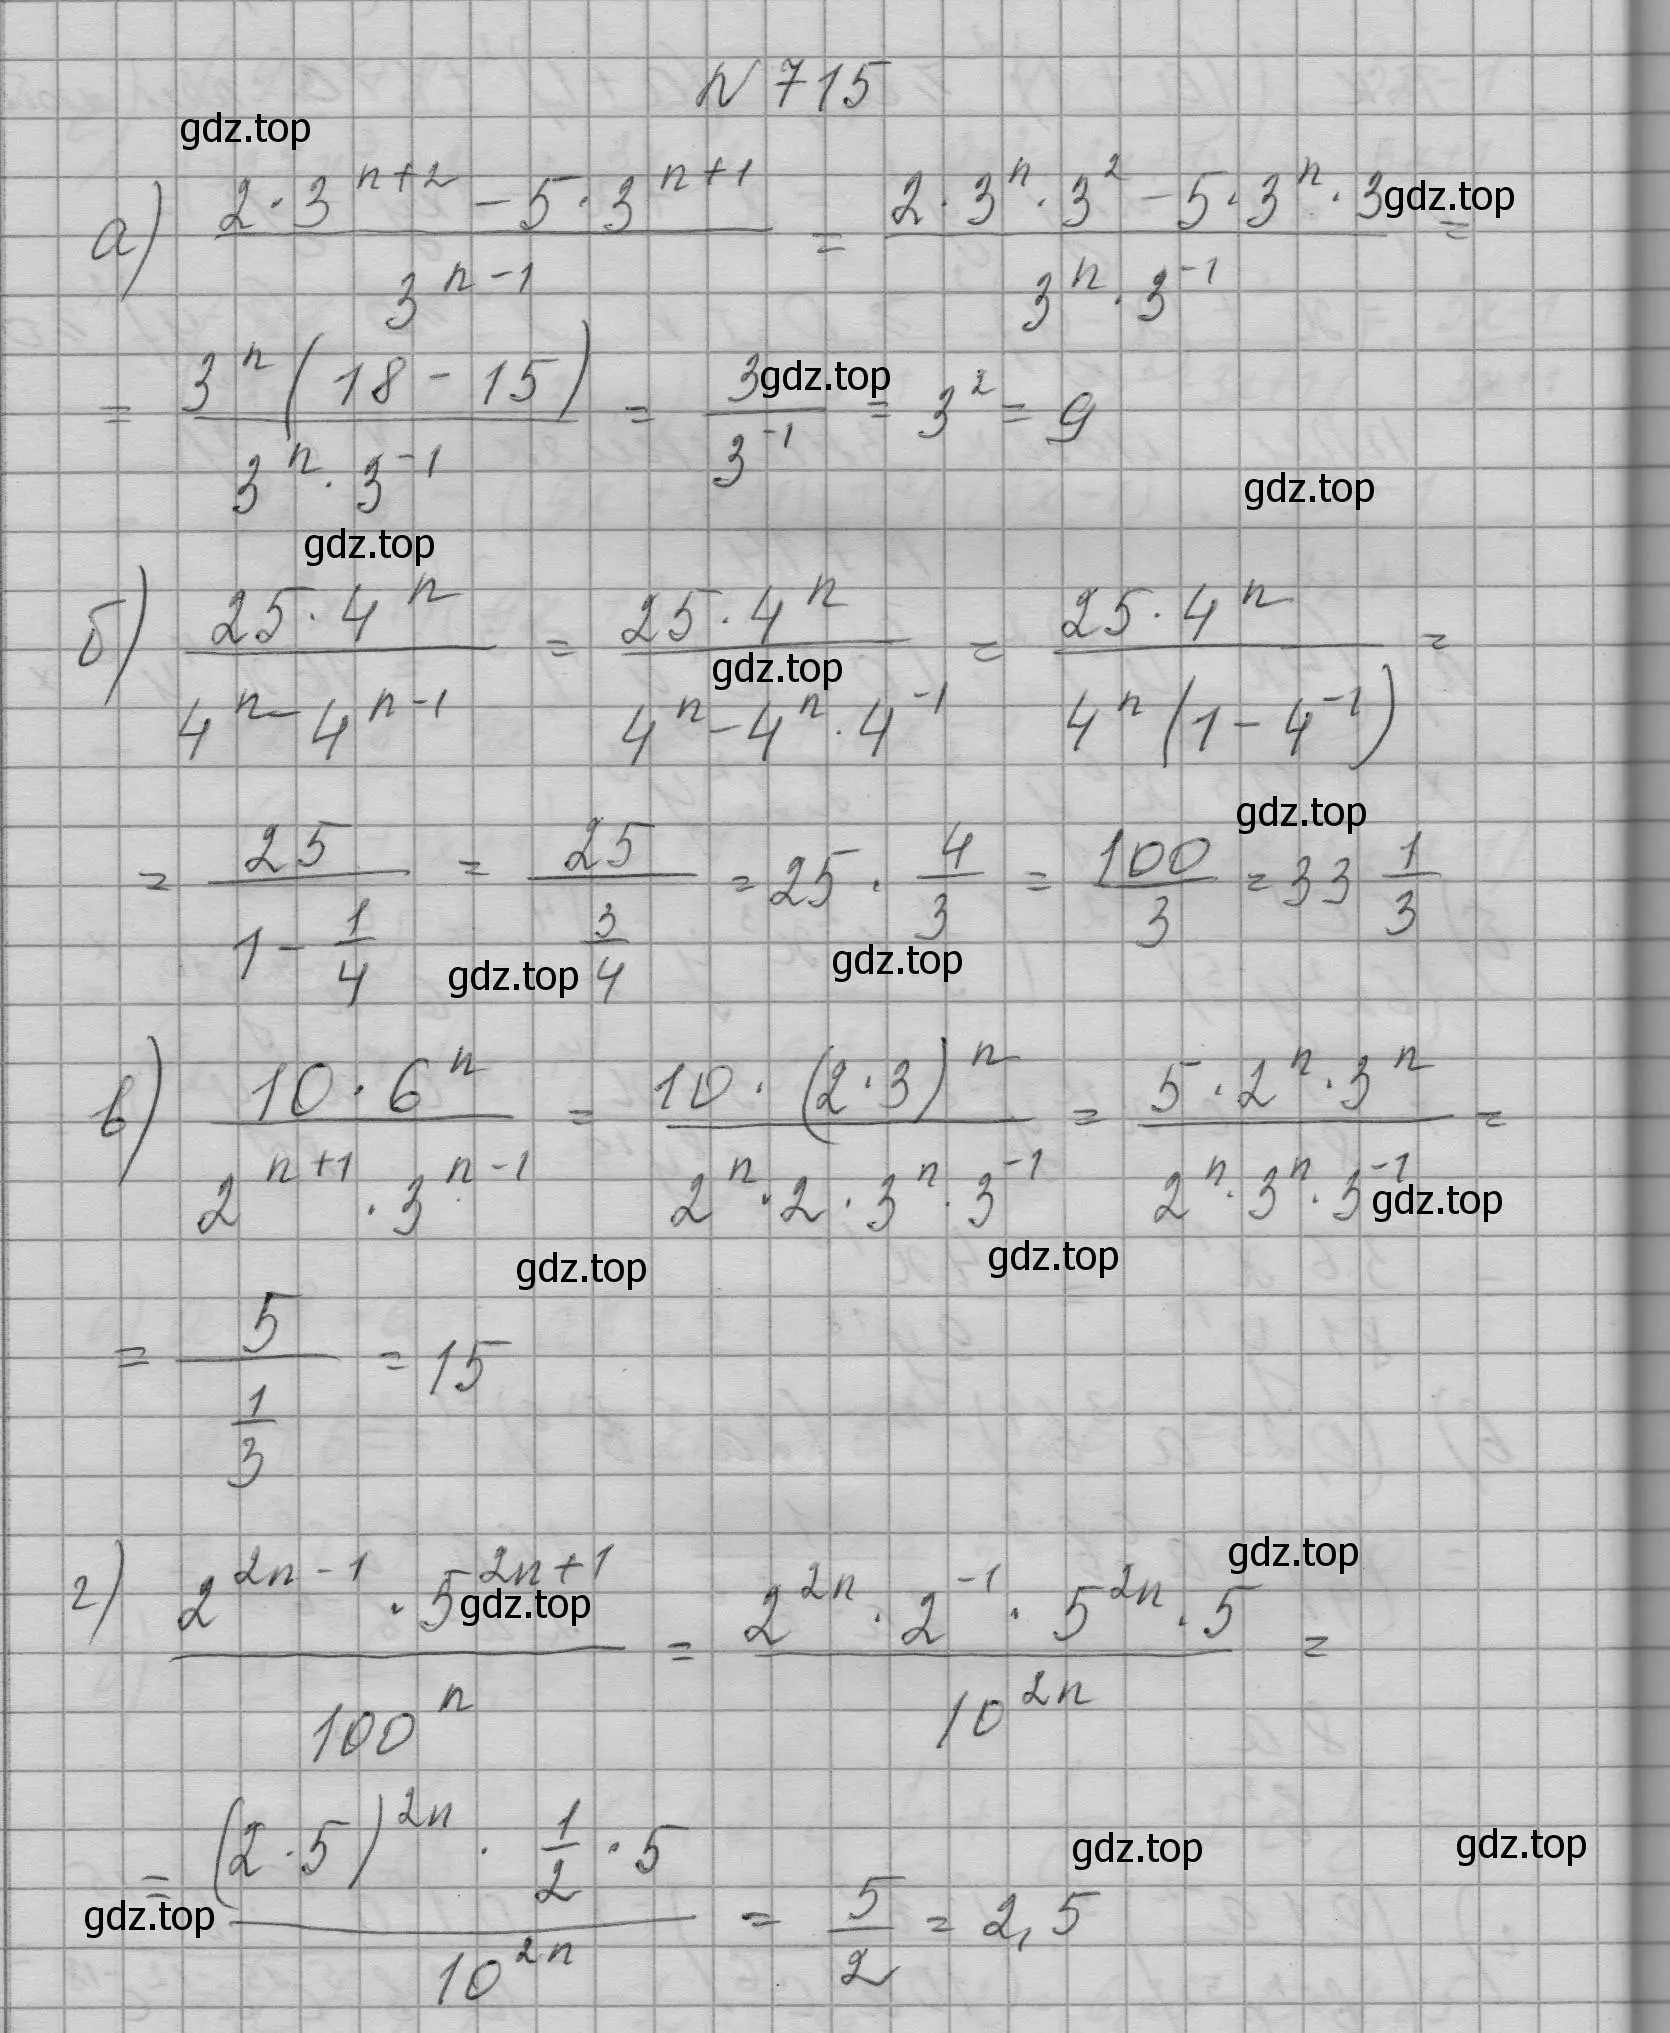 N 715
gdz.top
а) (2·3^(n+2) − 5·3^(n+1)) / 3^(n−1) = (2·3^n·3^2 − 5·3^n·3) / (3^n·3^(−1)) =
gdz.top
= 3^n(18−15) / (3^n·3^(−1)) = 3 / 3^(−1) = 3^2 = 9
gdz.top
gdz.top
gdz.top
б) 25·4^n / (4^n − 4^(n−1)) = 25·4^n / (4^n − 4^n·4^(−1)) = 25·4^n / (4^n(1 − 4^(−1))) =
gdz.top
gdz.top
= 25 / (1 − 1/4) = 25 / (3/4) = 25 · 4/3 = 100/3 = 33 1/3
gdz.top
gdz.top
в) 10·6^n / (2^(n+1)·3^(n−1)) = 10·(2·3)^n / (2^n·2·3^n·3^(−1)) = 5·2^n·3^n / (2^n·3^n·3^(−1)) =
gdz.top
gdz.top
gdz.top
= 5 / (1/3) = 15
gdz.top
г) 2^(2n−1)·5^(2n+1) / 100^n = 2^(2n)·2^(−1)·5^(2n)·5 / 10^(2n) =
gdz.top
= (2·5)^(2n) · 1/2 · 5 / 10^(2n) = 5/2 = 2,5
gdz.top
gdz.top
gdz.top